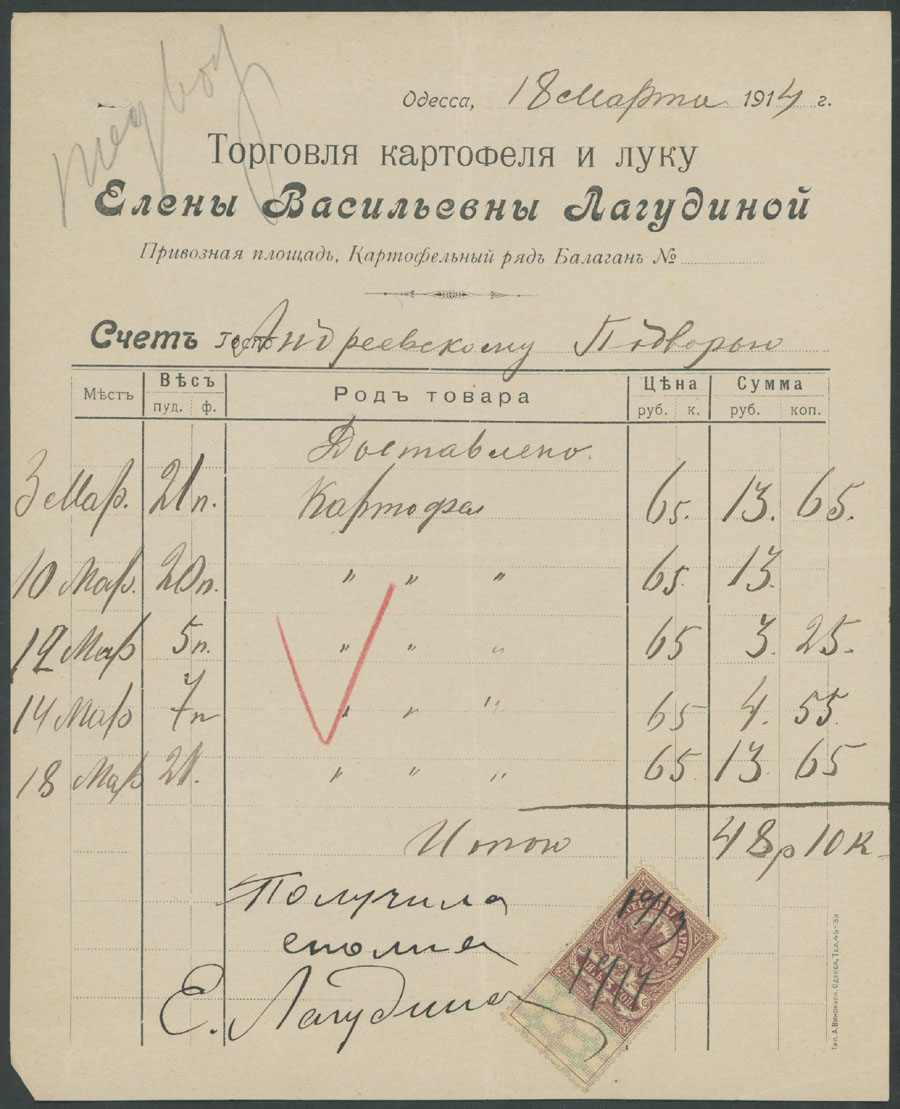 Одесса, 18 Марта 1914 г.
Торговля картофеля и луку
Елены Васильевны Лагудиной
Привозная площадь, Картофельный рядъ Балаганъ №
Счетъ Госп. Андреевскому Подворью
Мѣстъ Вѣсъ Родъ товара Цѣна Сумма
пуд. ф. руб. к. руб. коп.
Доставлено.
3 Мар. 21 п. Картофел 65. 13. 65.
10 Мар. 20 п. " " " 65. 13.
12 Мар 5 п. " " " 65 3. 25.
14 Мар 7 п " " " 65 4. 55.
18 Мар 21. " " " 65 13 65
Итого 48 р 10 к
Получила
сполна
Е. Лагудина